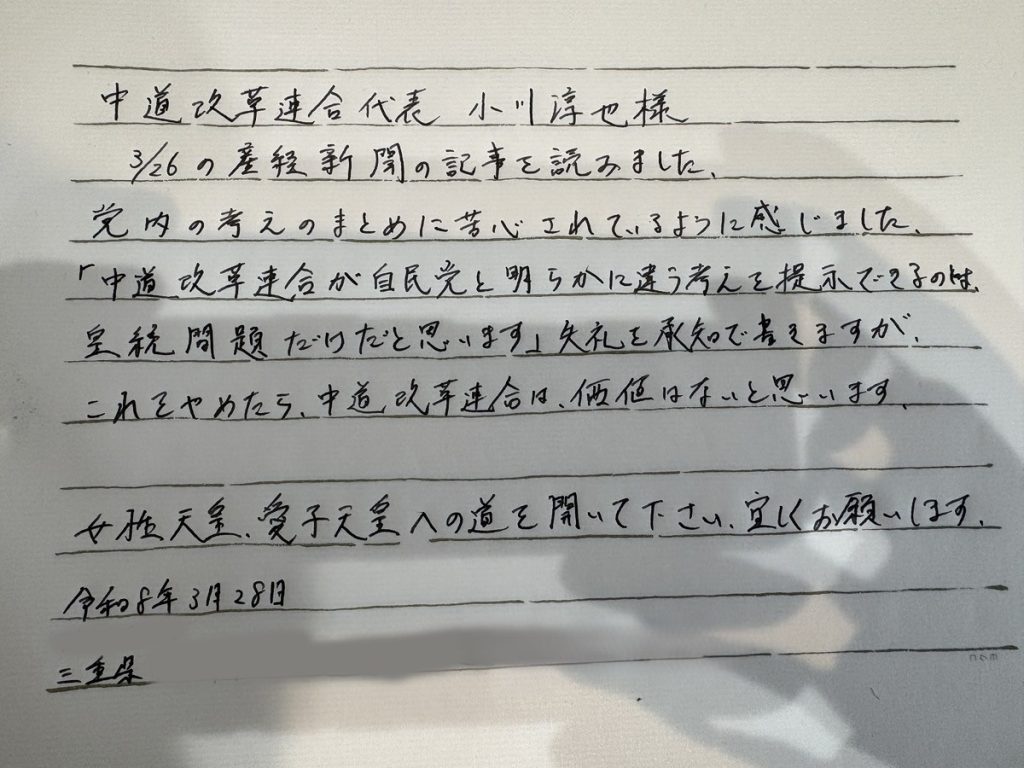 中道改革連合代表 小川淳也様
3/26の産経新聞の記事を読みました、
党内の考えのまとめに苦心されているように感じました、
「中道改革連合が自民党と明らかに違う考えを提示できるのは、
皇統問題だけだと思います」失礼を承知で書きますが、
これをやめたら、中道改革連合は、価値はないと思います、
女性天皇、愛子天皇への道を開いて下さい、宜しくお願いします、
令和8年3月28日
三重県